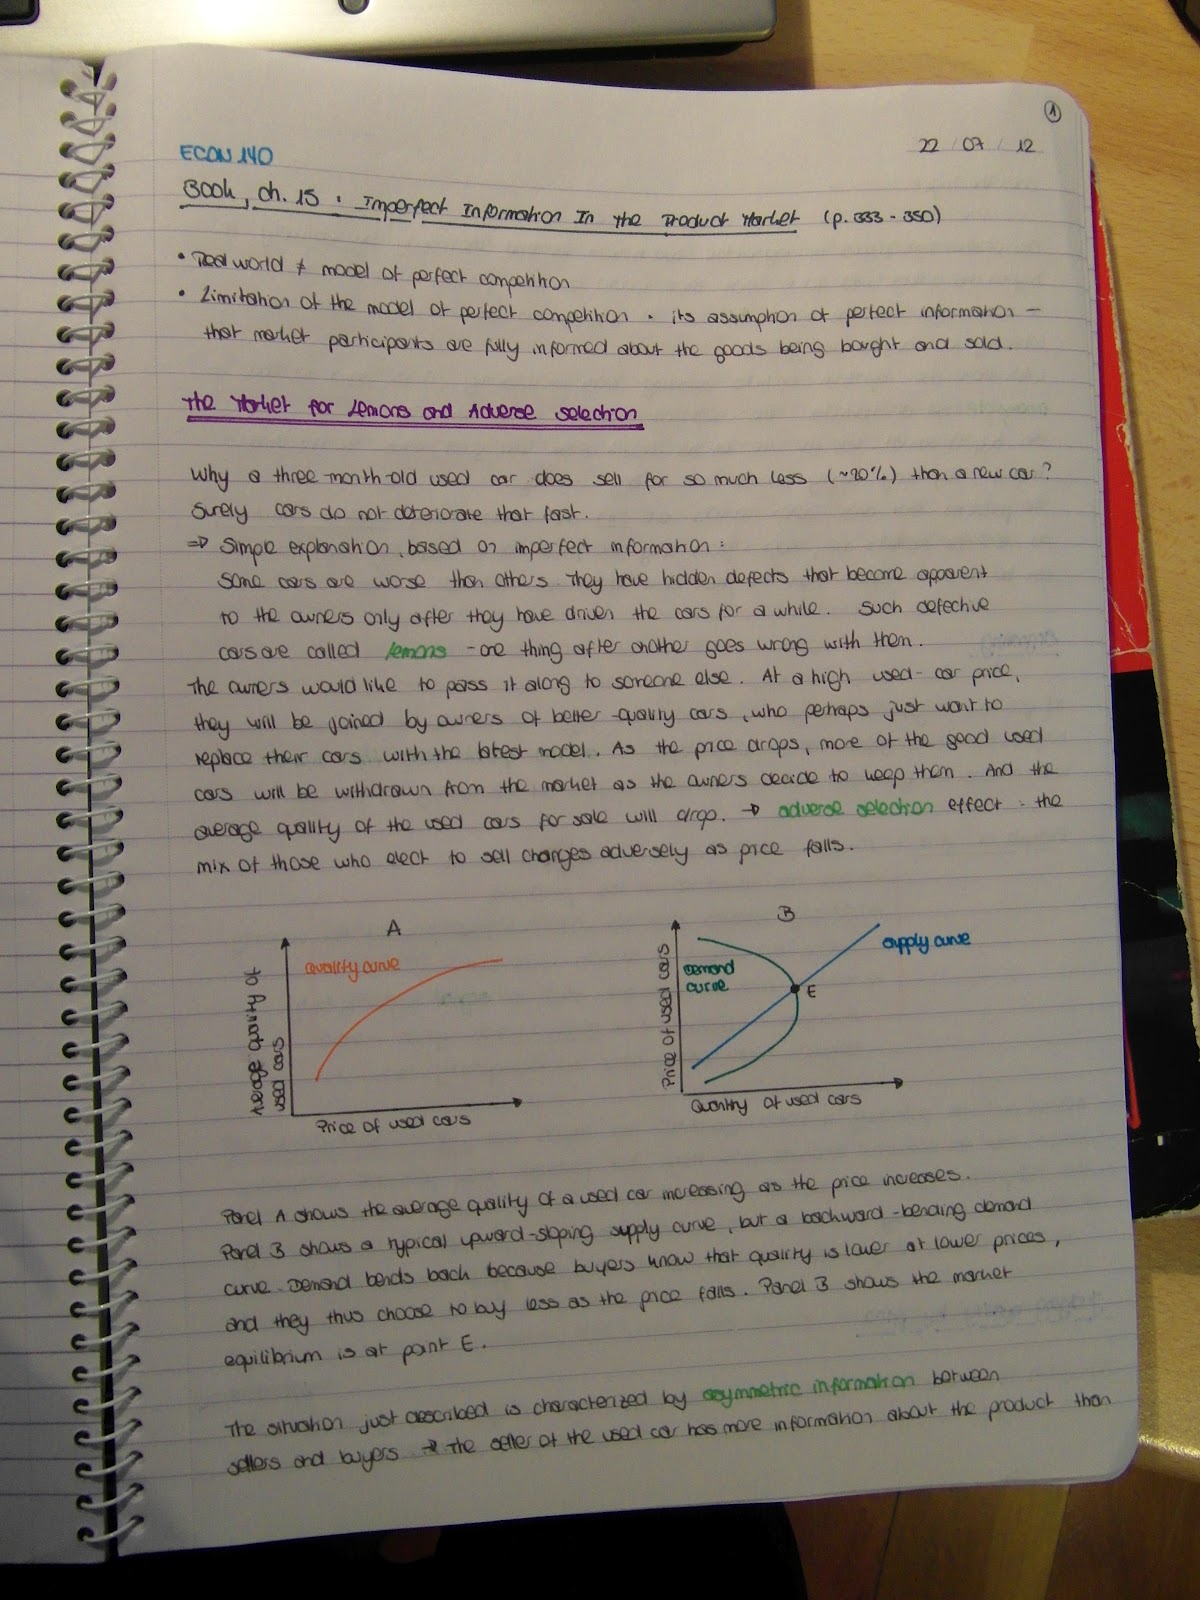 1
22 / 07 / 12
ECON 140
Book, ch. 15 • Imperfect Information In the Product Market (p. 333 - 350)
• Real world ≠ model of perfect competition
• Limitation of the model of perfect competition • its assumption of perfect information –
that market participants are fully informed about the goods being bought and sold.
The Market for Lemons and Adverse Selection
Why a three-month-old used car does sell for so much less (~20%) than a new car?
Surely cars do not deteriorate that fast.
⇒ Simple explanation, based on imperfect information:
Some cars are worse than others. They have hidden defects that become apparent
to the owners only after they have driven the cars for a while. Such defective
cars are called lemons - one thing after another goes wrong with them.
The owners would like to pass it along to someone else. At a high used-car price,
they will be joined by owners of better-quality cars, who perhaps just want to
replace their cars with the latest model. As the price drops, more of the good used
cars will be withdrawn from the market as the owners decide to keep them. And the
average quality of the used cars for sale will drop. → adverse selection effect : the
mix of those who elect to sell changes adversely as price falls.
A
quality curve
Average quality of
used cars
Price of used cars
B
supply curve
Demand
curve
E
Price of used cars
Quantity of used cars
Panel A shows the average quality of a used car increasing as the price increases.
Panel B shows a typical upward-sloping supply curve, but a backward-bending demand
curve. Demand bends back because buyers know that quality is lower at lower prices,
and they thus choose to buy less as the price falls. Panel B shows the market
equilibrium is at point E.
The situation just described is characterized by asymmetric information between
sellers and buyers → The seller of the used car has more information about the product than